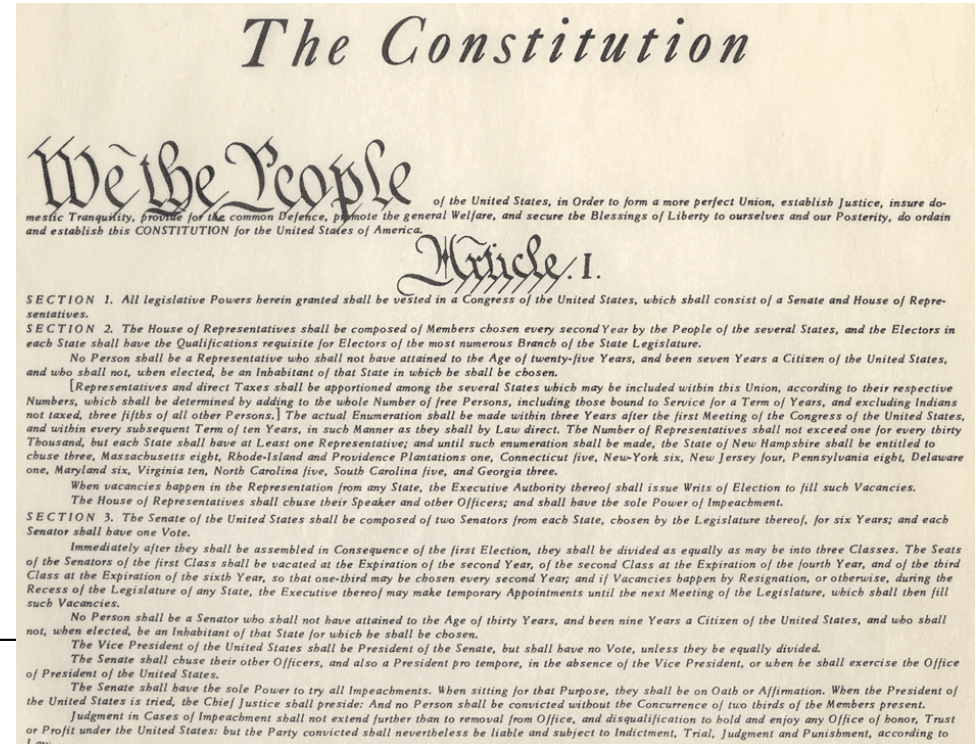 The Constitution
We the People
of the United States, in Order to form a more perfect Union, establish Justice, insure do-
mestic Tranquility, provide for the common Defence, promote the general Welfare, and secure the Blessings of Liberty to ourselves and our Posterity, do ordain
and establish this CONSTITUTION for the United States of America.
Article. I.
SECTION 1. All legislative Powers herein granted shall be vested in a Congress of the United States, which shall consist of a Senate and House of Repre-
sentatives.
SECTION 2. The House of Representatives shall be composed of Members chosen every second Year by the People of the several States, and the Electors in
each State shall have the Qualifications requisite for Electors of the most numerous Branch of the State Legislature.
No Person shall be a Representative who shall not have attained to the Age of twenty-five Years, and been seven Years a Citizen of the United States,
and who shall not, when elected, be an Inhabitant of that State in which he shall be chosen.
[Representatives and direct Taxes shall be apportioned among the several States which may be included within this Union, according to their respective
Numbers, which shall be determined by adding to the whole Number of free Persons, including those bound to Service for a Term of Years, and excluding Indians
not taxed, three fifths of all other Persons.] The actual Enumeration shall be made within three Years after the first Meeting of the Congress of the United States,
and within every subsequent Term of ten Years, in such Manner as they shall by Law direct. The Number of Representatives shall not exceed one for every thirty
Thousand, but each State shall have at Least one Representative; and until such enumeration shall be made, the State of New Hampshire shall be entitled to
chuse three, Massachusetts eight, Rhode-Island and Providence Plantations one, Connecticut five, New-York six, New Jersey four, Pennsylvania eight, Delaware
one, Maryland six, Virginia ten, North Carolina five, South Carolina five, and Georgia three.
When vacancies happen in the Representation from any State, the Executive Authority thereof shall issue Writs of Election to fill such Vacancies.
The House of Representatives shall chuse their Speaker and other Officers; and shall have the sole Power of Impeachment.
SECTION 3. The Senate of the United States shall be composed of two Senators from each State, chosen by the Legislature thereof, for six Years; and each
Senator shall have one Vote.
Immediately after they shall be assembled in Consequence of the first Election, they shall be divided as equally as may be into three Classes. The Seats
of the Senators of the first Class shall be vacated at the Expiration of the second Year, of the second Class at the Expiration of the fourth Year, and of the third
Class at the Expiration of the sixth Year, so that one-third may be chosen every second Year; and if Vacancies happen by Resignation, or otherwise, during the
Recess of the Legislature of any State, the Executive thereof may make temporary Appointments until the next Meeting of the Legislature, which shall then fill
such Vacancies.
No Person shall be a Senator who shall not have attained to the Age of thirty Years, and been nine Years a Citizen of the United States, and who shall
not, when elected, be an Inhabitant of that State for which he shall be chosen.
The Vice President of the United States shall be President of the Senate, but shall have no Vote, unless they be equally divided.
The Senate shall chuse their other Officers, and also a President pro tempore, in the absence of the Vice President, or when he shall exercise the Office
of President of the United States.
The Senate shall have the sole Power to try all Impeachments. When sitting for that Purpose, they shall be on Oath or Affirmation. When the President of
the United States is tried, the Chief Justice shall preside: And no Person shall be convicted without the Concurrence of two thirds of the Members present.
Judgment in Cases of Impeachment shall not extend further than to removal from Office, and disqualification to hold and enjoy any Office of honor, Trust
or Profit under the United States: but the Party convicted shall nevertheless be liable and subject to Indictment, Trial, Judgment and Punishment, according to